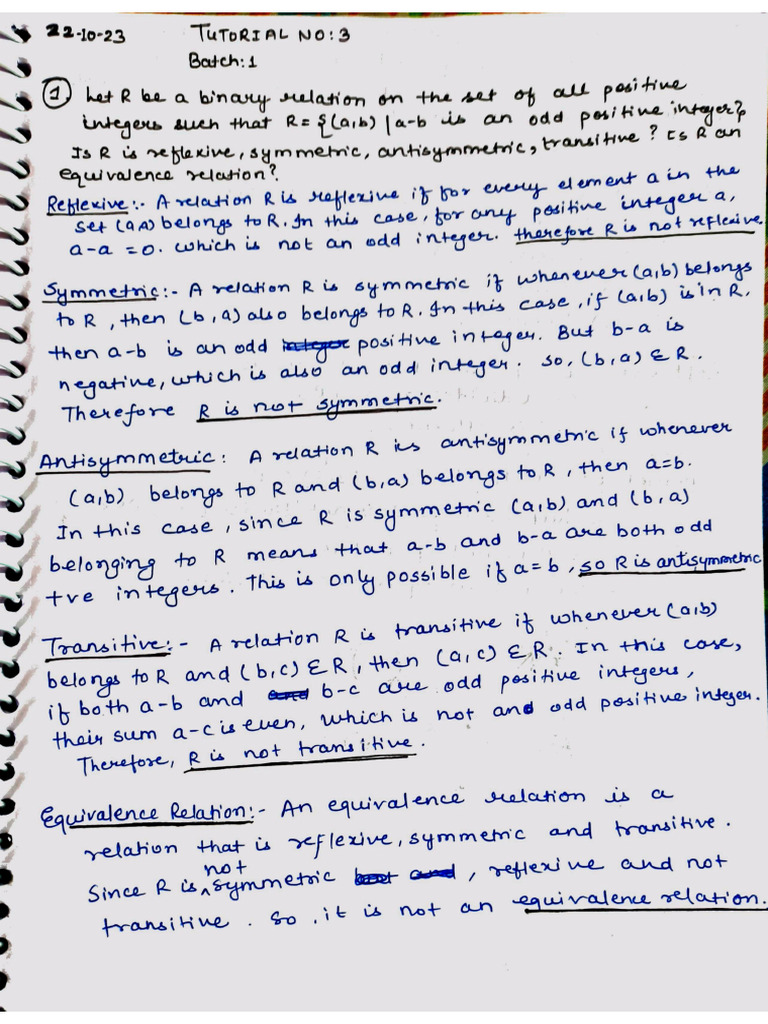 22-10-23 TUTORIAL NO: 3
Batch: 1
1. Let R be a binary relation on the set of all positive
integers such that R = {(a,b) | a-b is an odd positive integer}
Is R is reflexive, symmetric, antisymmetric, transitive? Is R an
equivalence relation?
Reflexive:- A relation R is reflexive if for every element a in the
set (a,a) belongs to R. In this case, for any positive integer a,
a-a = 0. which is not an odd integer. therefore R is not reflexive.
Symmetric:- A relation R is symmetric if whenever (a,b) belongs
to R, then (b,a) also belongs to R. In this case, if (a,b) is in R,
then a-b is an odd integer positive integer. But b-a is
negative, which is also an odd integer. so, (b,a) Ɛ R.
Therefore R is not symmetric.
Antisymmetric: A relation R is antisymmetric if whenever
(a,b) belongs to R and (b,a) belongs to R, then a=b.
In this case, since R is symmetric (a,b) and (b,a)
belonging to R means that a-b and b-a are both odd
+ve integers. This is only possible if a=b, so R is antisymmetric
Transitive:- A relation R is transitive if whenever (a,b)
belongs to R and (b,c) Ɛ R, then (a,c) Ɛ R. In this case,
if both a-b and and b-c are odd positive integers,
their sum a-c is even, which is not and odd positive integer.
Therefore, R is not transitive.
Equivalence Relation:- An equivalence relation is a
relation that is reflexive, symmetric and transitive.
Since R is not symmetric, reflexive and not
transitive. So, it is not an equivalence relation.